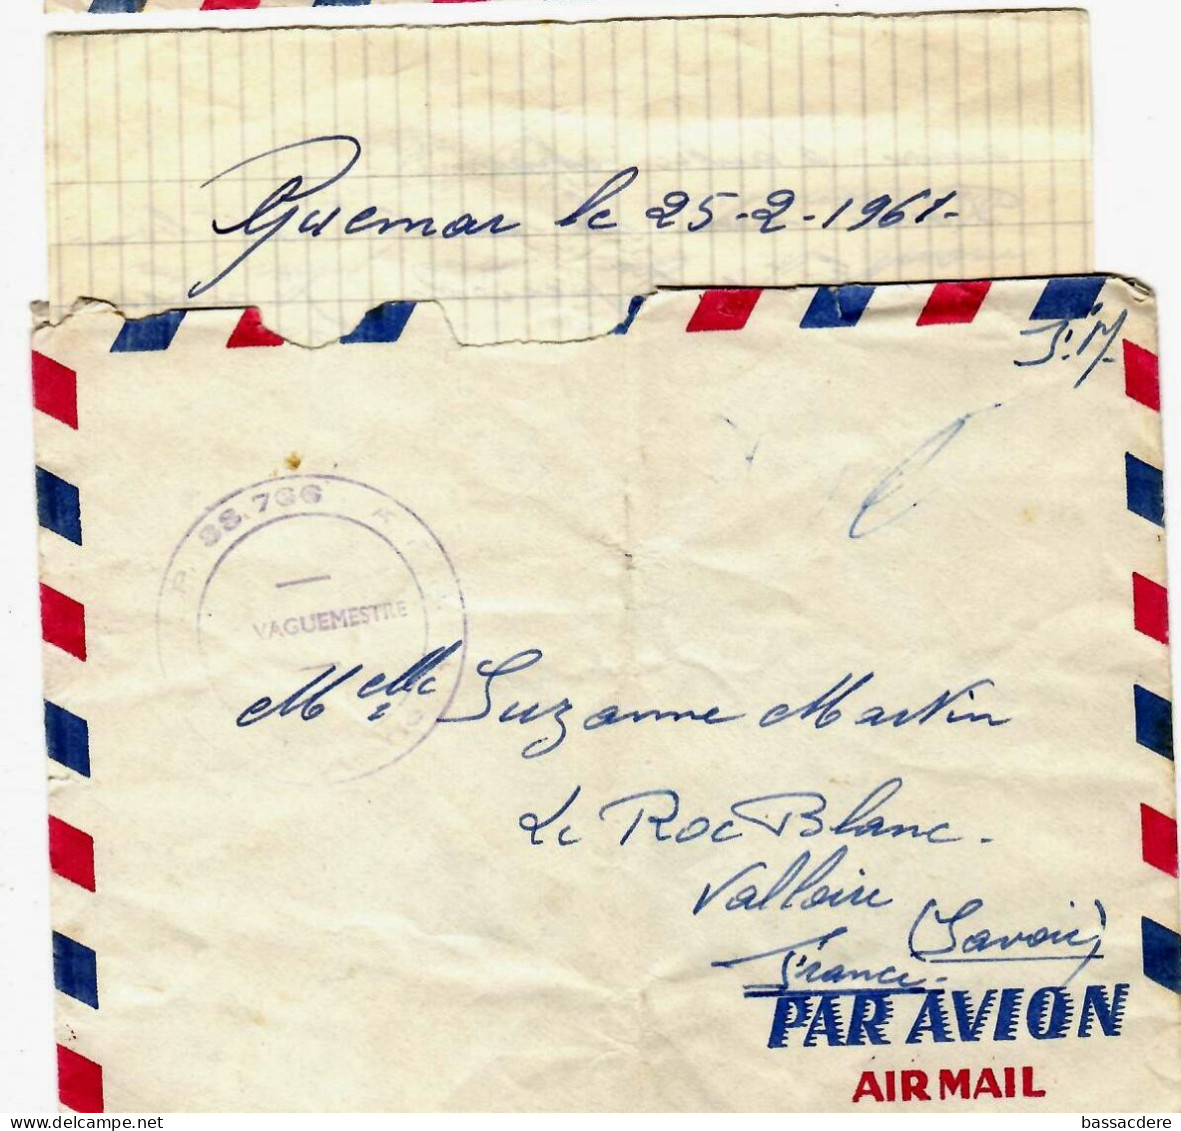 Guemar le 25-2-1961-
F.M.
SS.766
VAGUEMESTRE
Melle Suzanne Martin
Le Roc Blanc.
Valloire
(Savoie)
France.
PAR AVION
AIR MAIL
bassacdere